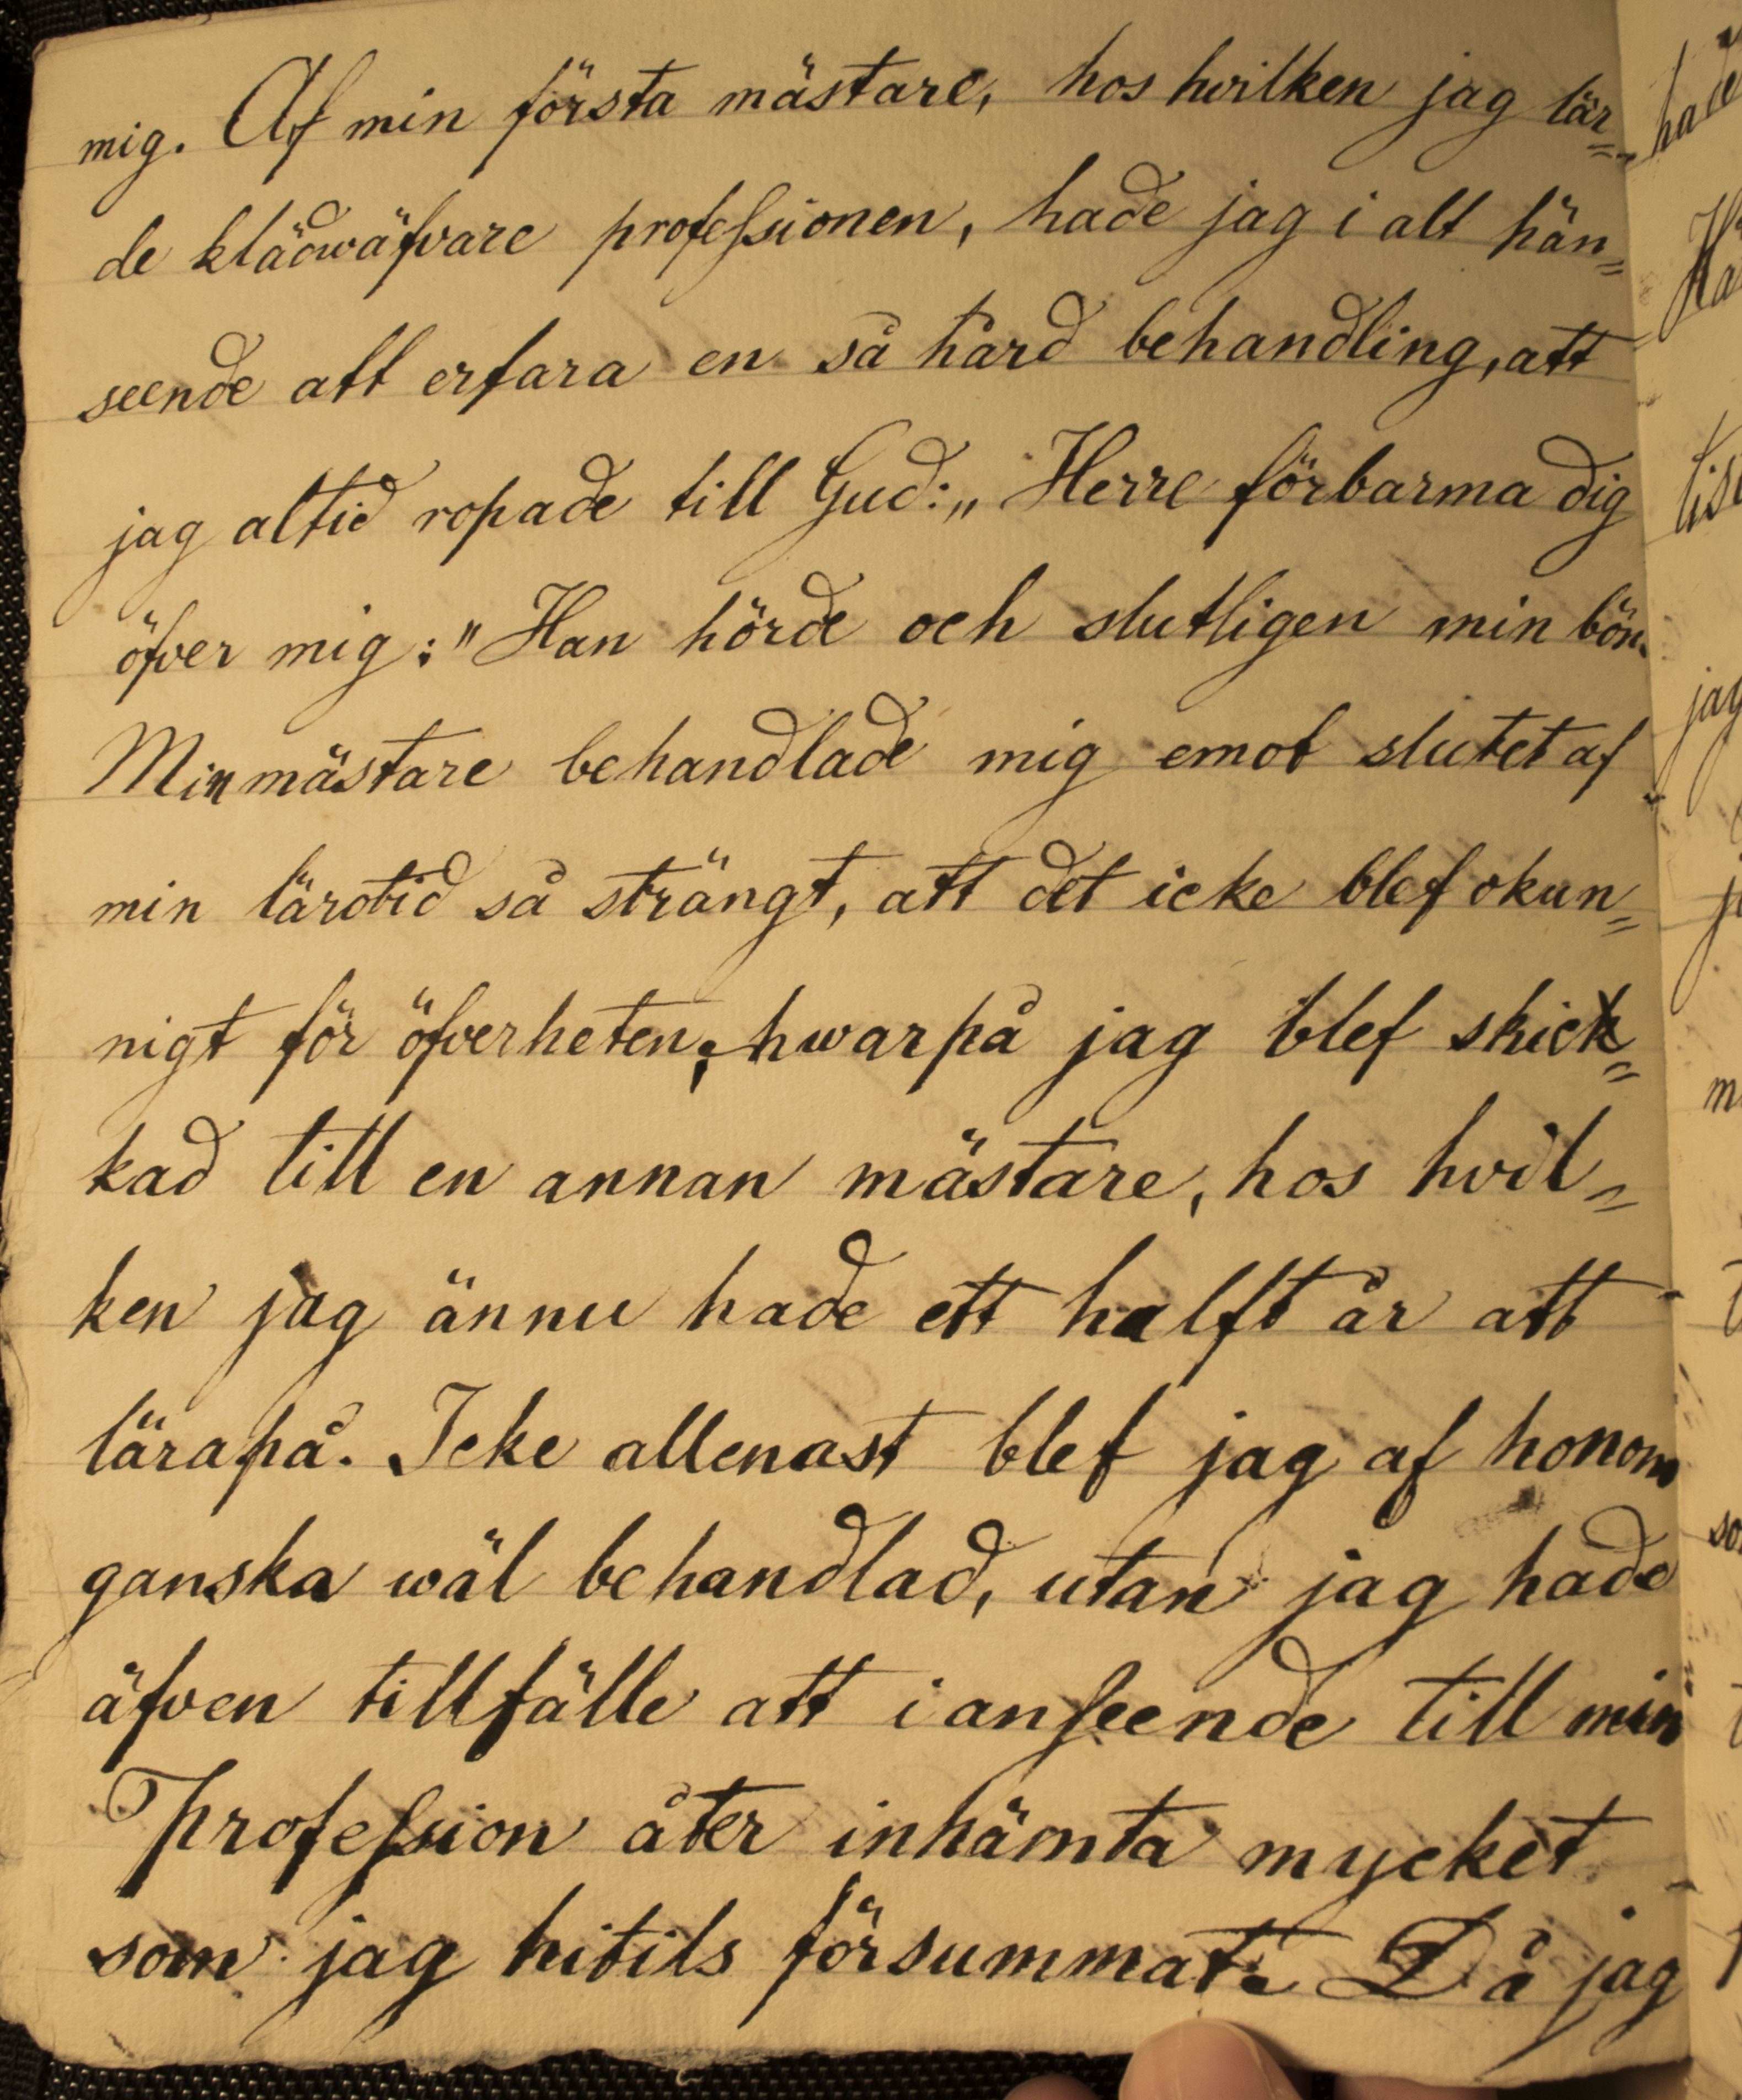 mig. Af min första mästare, hos hvilken jag lär=
de klädwäfvare professionen, hade jag i alt hän=
seende att erfara en så hård behandling, att
jag altid ropade till Gud: „Herre förbarma dig
öfver mig:" Han hörde och slutligen min bön.
Min mästare behandlade mig emot slutet af
min lärotid så strängt, att det icke blef okun=
nigt för öfverheten; hwarpå jag blef skick=
kad till en annan mästare, hos hvil=
ken jag ännu hade ett halft år att
lära på. Icke allenast blef jag af honom
ganska wäl behandlad, utan jag hade
äfven tillfälle att i anseende till min
Profession åter inhämta mycket
som jag hitils försummat. Då jag
hade
jag